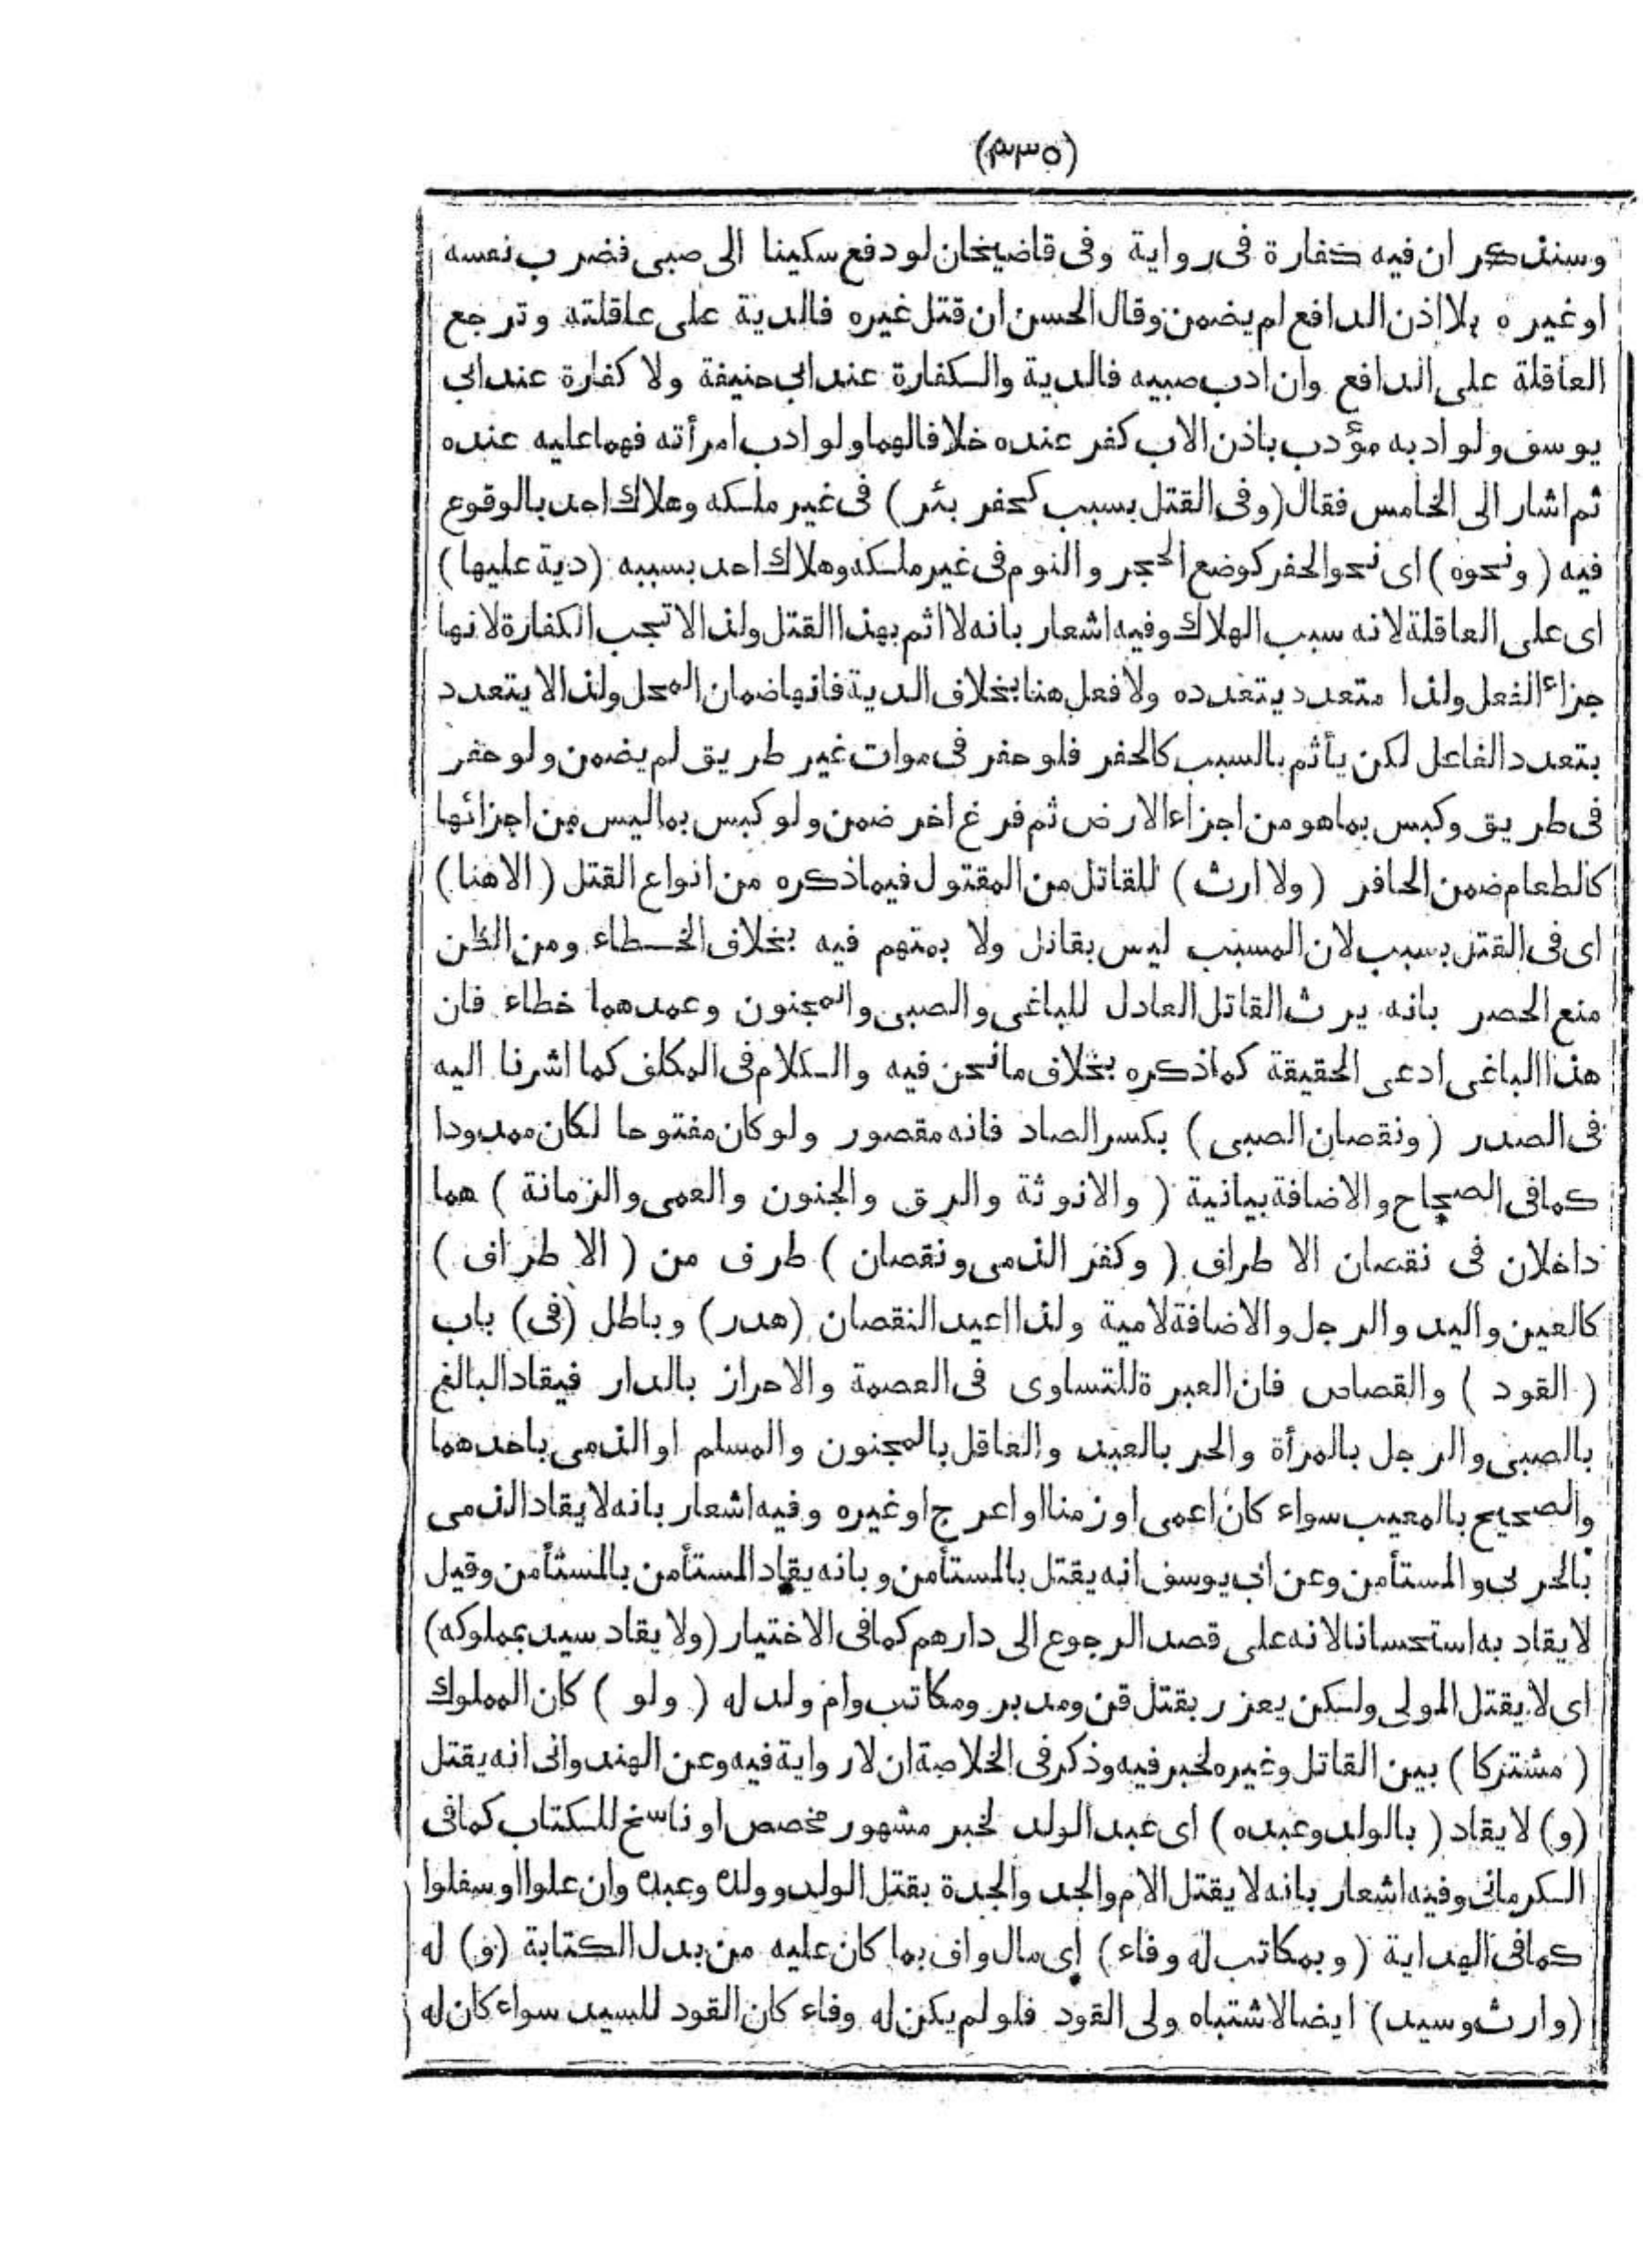 (٥٣٤)
وسنذكر ان فيه كفارة فى رواية وفى قاضيخان لو دفع سكينا الى صبى فضرب نفسه
او غيره بلا اذن الدافع لم يضمن وقال الحسن ان قتل غيره فالدية على عاقلته وترجع
العاقلة على الدافع وان ادب صبيه فالدية والكفارة عند ابى حنيفة ولا كفارة عند ابى
يوسف ولو ادبه مؤدب باذن الاب كفر عنده خلافا لهما ولو ادب امرأته فهما عليه عنده
ثم اشار الى الخامس فقال (وفى القتل بسبب كحفر بئر) فى غير ملكه وهلاك احد بالوقوع
فيه (ونحوه) اى نحو الحفر كوضع الحجر والنوم فى غير ملكه وهلاك احد بسببه (دية عليها)
اى على العاقلة لانه سبب الهلاك وفيه اشعار بانه لا اثم بهذا القتل ولذا لا تجب الكفارة لانها
جزاء الفعل ولذا متعدد بتعدده ولا فعل هنا بخلاف الدية فانها ضمان المحل ولذا لا يتعدد
بتعدد الفاعل لكن يأثم بالسبب كالحفر فلو حفر فى موات غير طريق لم يضمن ولو حفر
فى طريق وكبس بما هو من اجزاء الارض ثم فرغ اخر ضمن ولو كبس بما ليس من اجزائها
كالطعام ضمن الحافر (ولا ارث) للقاتل من المقتول فيما ذكره من انواع القتل (الا هنا)
اى فى القتل بسبب لان المسبب ليس بقاتل ولا بمتهم فيه بخلاف الخطاء ومن الظن
منع الحصر بانه يرث القاتل العادل للباغى والصبى والمجنون وعمدهما خطاء فان
هذا الباغى ادعى الحقيقة كما ذكره بخلاف ما نحن فيه والكلام فى المكلف كما اشرنا اليه
فى الصدر (ونقصان الصبى) بكسر الصاد فانه مقصور ولو كان مفتوحا لكان ممدودا
كما فى الصحاح والاضافة بيانية (والانوثة والرق والجنون والعمى والزمانة) هما
داخلان فى نقصان الاطراف (وكفر الذمى ونقصان) طرف من (الاطراف)
كالعين واليد والرجل والاضافة لامية ولذا اعيد النقصان (هدر) وباطل (فى) باب
(القود) والقصاص فان العبرة للتساوى فى العصمة والاحراز بالدار فيقاد البالغ
بالصبى والرجل بالمرأة والحر بالعبد والعاقل بالمجنون والمسلم او الذمى باحدهما
والصحيح بالمعيب سواء كان اعمى او زمنا او اعرج او غيره وفيه اشعار بانه لا يقاد الذمى
بالحربى والمستأمن وعن ابى يوسف انه يقتل بالمستأمن وبانه يقاد المستأمن بالمستأمن وقيل
لا يقاد به استحسانا لانه على قصد الرجوع الى دارهم كما فى الاختيار (ولا يقاد سيد بمملوكه)
اى لا يقتل المولى ولكن يعزر بقتل قن ومدبر ومكاتب وام ولد له (ولو) كان المملوك
(مشتركا) بين القاتل وغيره لخبر فيه وذكر فى الخلاصة ان لا رواية فيه وعن الهندوانى انه يقتل
(و) لا يقاد (بالولد وعبده) اى عبد الولد لخبر مشهور مخصص او ناسخ للكتاب كما فى
الكرمانى وفيه اشعار بانه لا يقتل الام والجد والجدة بقتل الولد وولده وعبده وان علوا او سفلوا
كما فى الهداية (وبمكاتب له وفاء) اى مال واف بما كان عليه من بدل الكتابة (و) له
(وارث وسيد) ايضا لاشتباه ولى القود فلو لم يكن له وفاء كان القود للسيد سواء كان له